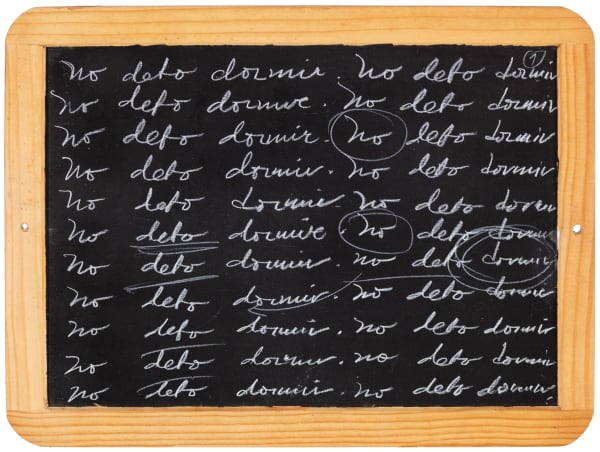 1
No debo dormir. No debo dormir
No debo dormir. No debo dormir
No debo dormir. No debo dormir
No debo dormir. No debo dormir
No debo dormir. No debo dormir
No debo dormir. No debo dormir
No debo dormir. no debo dormir
No debo dormir. No debo dormir
No debo dormir. No debo dormir
No debo dormir. no debo dormir
No debo dormir. No debo dormir.